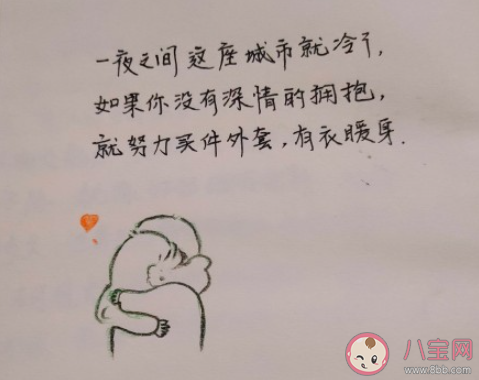 一夜之间这座城市就冷了,
如果你没有深情的拥抱,
就努力买件外套,有衣暖身.
八宝网
www.8bb.com